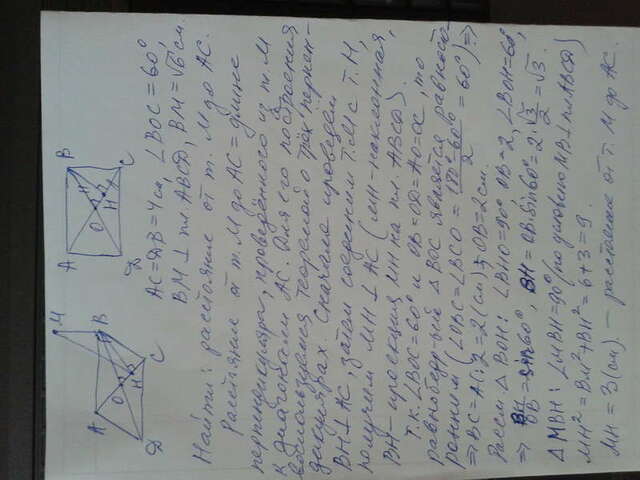 M
A
B
O
H
C
D
A
B
O
H
C
D
AC=DB=4см, ∠BOC=60°
BM⊥пл ABCD, BM=√6см.
Найти: расстояние от т. M до AC.
Расстояние от т. M до AC = длине
перпендикуляра, проведённого из т. M
к диагонали AC. Для его построения
воспользуемся теоремой о трёх перпен-
дикулярах. Сначала проведём
BH⊥AC, затем соединим т. M с т. H,
получим MH⊥AC (MH-наклонная,
BH-проекция MH на пл. ABCD).
Т.к. ∠BOC=60° и OB=OD=AO=OC, то
равнобедр-ый △BOC является равносто-
ронним (∠OBC=∠BCO=(180°-60°)/2=60°)⇒
⇒BC=AC:2=2(см); OB=2см.
Рассм △BOH: ∠BHO=90° OB=2, ∠BOH=60°,
⇒ BH/OB=sin60°, BH=OB·sin60°=2·√3/2=√3.
△MBH: ∠MBH=90°(по условию MB⊥пл ABCD)
MH²=BM²+BH²=6+3=9.
MH=3(см). – расстояние от т. M до AC.